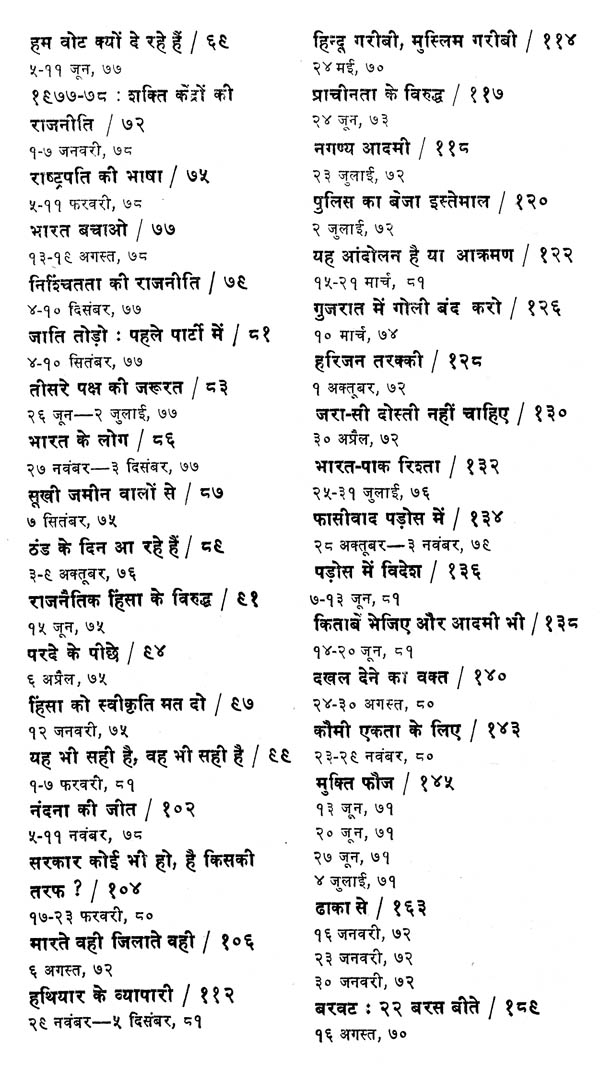 हम वोट क्यों दे रहे हैं / ६९
५-११ जून, ७७
१९७७-७८ : शक्ति केंद्रों की
राजनीति / ७२
१-७ जनवरी, ७८
राष्ट्रपति की भाषा / ७५
५-११ फरवरी, ७८
भारत बचाओ / ७७
१३-१९ अगस्त, ७८
निश्चिंतता की राजनीति / ७९
४-१० दिसंबर, ७७
जाति तोड़ो : पहले पार्टी में / ८१
४-१० सितंबर, ७७
तीसरे पक्ष की जरूरत / ८३
२६ जून—२ जुलाई, ७७
भारत के लोग / ८६
२७ नवंबर—३ दिसंबर, ७७
सूखी जमीन वालों से / ८७
७ सितंबर, ७५
ठंड के दिन आ रहे हैं / ८९
३-९ अक्तूबर, ७६
राजनैतिक हिंसा के विरुद्ध / ९१
१५ जून, ७५
परदे के पीछे / ९४
६ अप्रैल, ७५
हिंसा को स्वीकृति मत दो / ९७
१२ जनवरी, ७५
यह भी सही है, वह भी सही है / ९९
१-७ फरवरी, ८१
नंदना की जीत / १०२
५-११ नवंबर, ७८
सरकार कोई भी हो, है किसकी
तरफ ? / १०४
१७-२३ फरवरी, ८०
मारते वही जिलाते वही / १०६
६ अगस्त, ७२
हथियार के व्यापारी / ११२
२९ नवंबर—५ दिसंबर, ८१
हिन्दू गरीबी, मुस्लिम गरीबी / ११४
२४ मई, ७०
प्राचीनता के विरुद्ध / ११७
२४ जून, ७३
नगण्य आदमी / ११८
२३ जुलाई, ७२
पुलिस का बेजा इस्तेमाल / १२०
२ जुलाई, ७२
यह आंदोलन है या आक्रमण / १२२
१५-२१ मार्च, ८१
गुजरात में गोली बंद करो / १२६
१० मार्च, ७४
हरिजन तरक्की / १२८
१ अक्तूबर, ७२
जरा-सी दोस्ती नहीं चाहिए / १३०
३० अप्रैल, ७२
भारत-पाक रिश्ता / १३२
२५-३१ जुलाई, ७६
फासीवाद पड़ोस में / १३४
२८ अक्तूबर—३ नवंबर, ७९
पड़ोस में विदेश / १३६
७-१३ जून, ८१
किताबें भेजिए और आदमी भी / १३८
१४-२० जून, ८१
दखल देने का वक्त / १४०
२४-३० अगस्त, ८०
कौमी एकता के लिए / १४३
२३-२९ नवंबर, ८०
मुक्ति फौज / १४५
१३ जून, ७१
२० जून, ७१
२७ जून, ७१
४ जुलाई, ७१
ढाका से / १६३
१६ जनवरी, ७२
२३ जनवरी, ७२
३० जनवरी, ७२
बरवट : २२ बरस बीते / १८९
१६ अगस्त, ७०